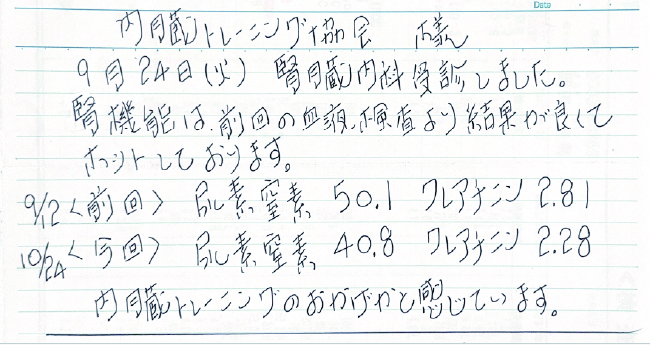 Date
内臓トレーニング協会 様
9月24日(火) 腎臓内科受診しました。
腎機能は、前回の血液検査より結果が良くて
ホットしております。
9/12<前回> 尿素窒素 50.1 クレアチニン 2.81
10/24<今回> 尿素窒素 40.8 クレアチニン 2.28
内臓トレーニングのおかげかと感じています。